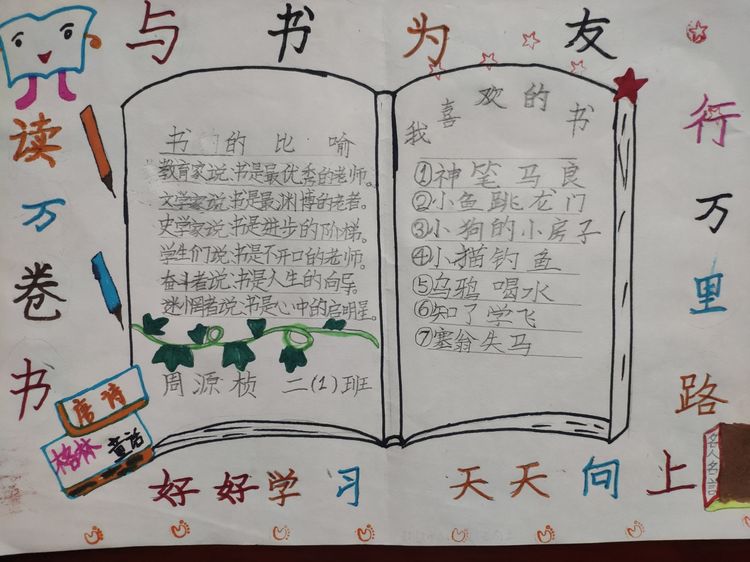 与书为友
读万卷书
行万里路
书 的比喻
教育家说:书是最优秀的老师。
文学家说:书是最渊博的老者。
史学家说:书是进步的阶梯。
学生们说:书是不开口的老师。
奋斗者说:书是人生的向导。
迷惘者说:书是心中的启明星。
周源桢 二(1)班
我喜欢的书
①神笔马良
②小鱼跳龙门
③小狗的小房子
④小猫钓鱼
⑤乌鸦喝水
⑥知了学飞
⑦塞翁失马
唐诗
格林童话
名人名言
好好学习 天天向上